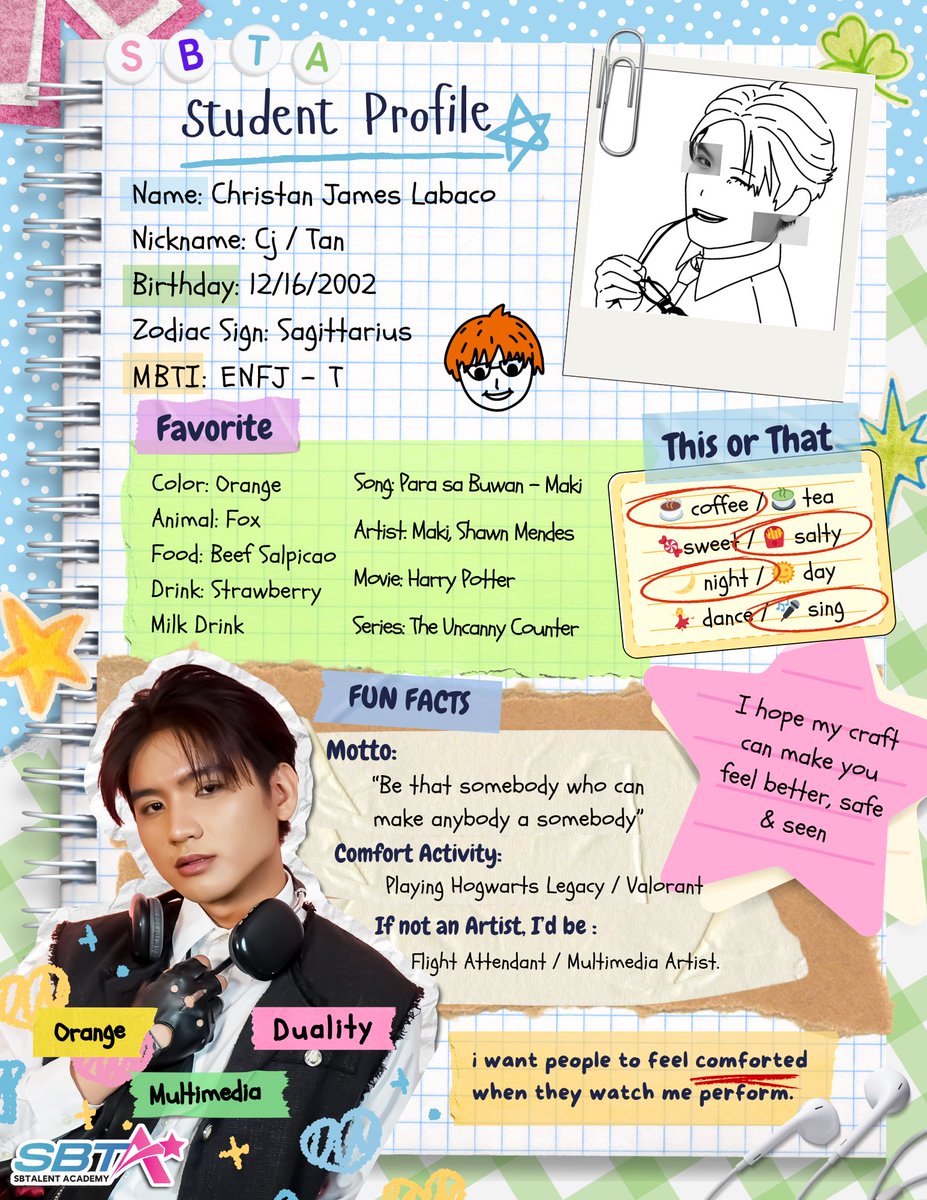 SBTA
Student Profile
Name: Christan James Labaco
Nickname: Cj / Tan
Birthday: 12/16/2002
Zodiac Sign: Sagittarius
MBTI: ENFJ - T
Favorite
Color: Orange
Animal: Fox
Food: Beef Salpicao
Drink: Strawberry
Milk Drink
Song: Para sa Buwan - Maki
Artist: Maki, Shawn Mendes
Movie: Harry Potter
Series: The Uncanny Counter
This or That
coffee / tea
sweet / salty
night / day
dance / sing
FUN FACTS
Motto:
"Be that somebody who can
make anybody a somebody"
Comfort Activity:
Playing Hogwarts Legacy / Valorant
If not an Artist, I'd be :
Flight Attendant / Multimedia Artist.
I hope my craft
can make you
feel better, safe
& seen
Orange
Duality
Multimedia
i want people to feel comforted
when they watch me perform.
SBTA
SBTALENT ACADEMY